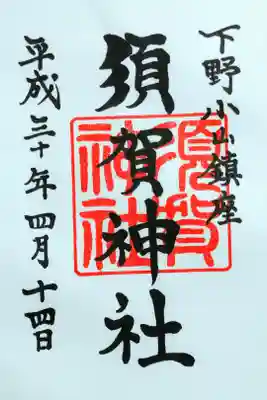 下野小山鎮座
須賀神社
須賀
神社
平成三十年四月十四日